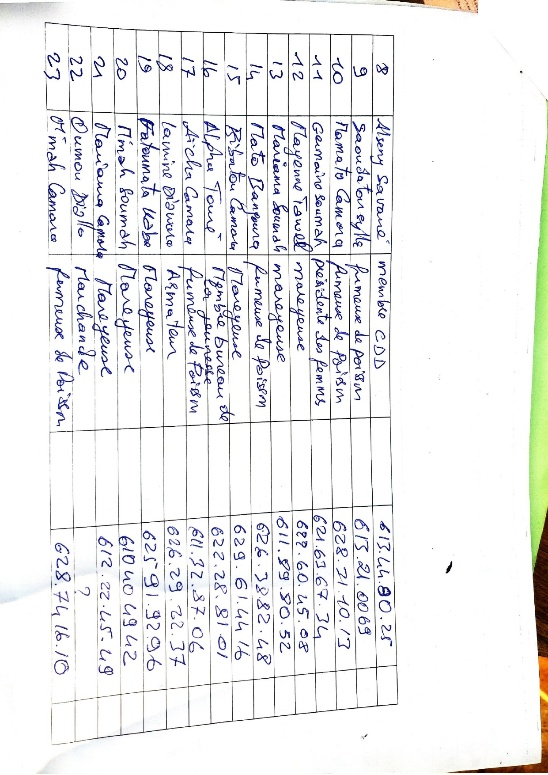 8 Alseny Savané membre CDD 613.44.80.25
9 Saoudatou sylla fumeuse de poisson 613.21.0069
10 Mamata Camara fumeuse de Poisson 628.71.10.13
11 Germaine soumah présidente des femmes 621.63.67.34
12 Mayenne mareyeuse 688.60.45.08
13 Mariama Soumah mareyeuse 611.89.80.52
14 Mato Bangoura fumeuse de Poisson 626.38.82.48
15 Camara Mareyeuse 629.61.44.16
16 Alpha Touré Membre bureau de la jeunesse 622.28.81.01
17 Aïcha Camara fumeuse de Poisson 611.32.87.06
18 Lamine Armateur 626.29.22.37
19 Fatoumata Mareyeuse 625.91.9296
20 Mmah Soumah Mareyeuse 610404942
21 Mariama Camara Mareyeuse 612.22.45.49
22 Oumou Diallo Marchande ?
23 Mmah Camara fumeuse de Poisson 628.7416.10